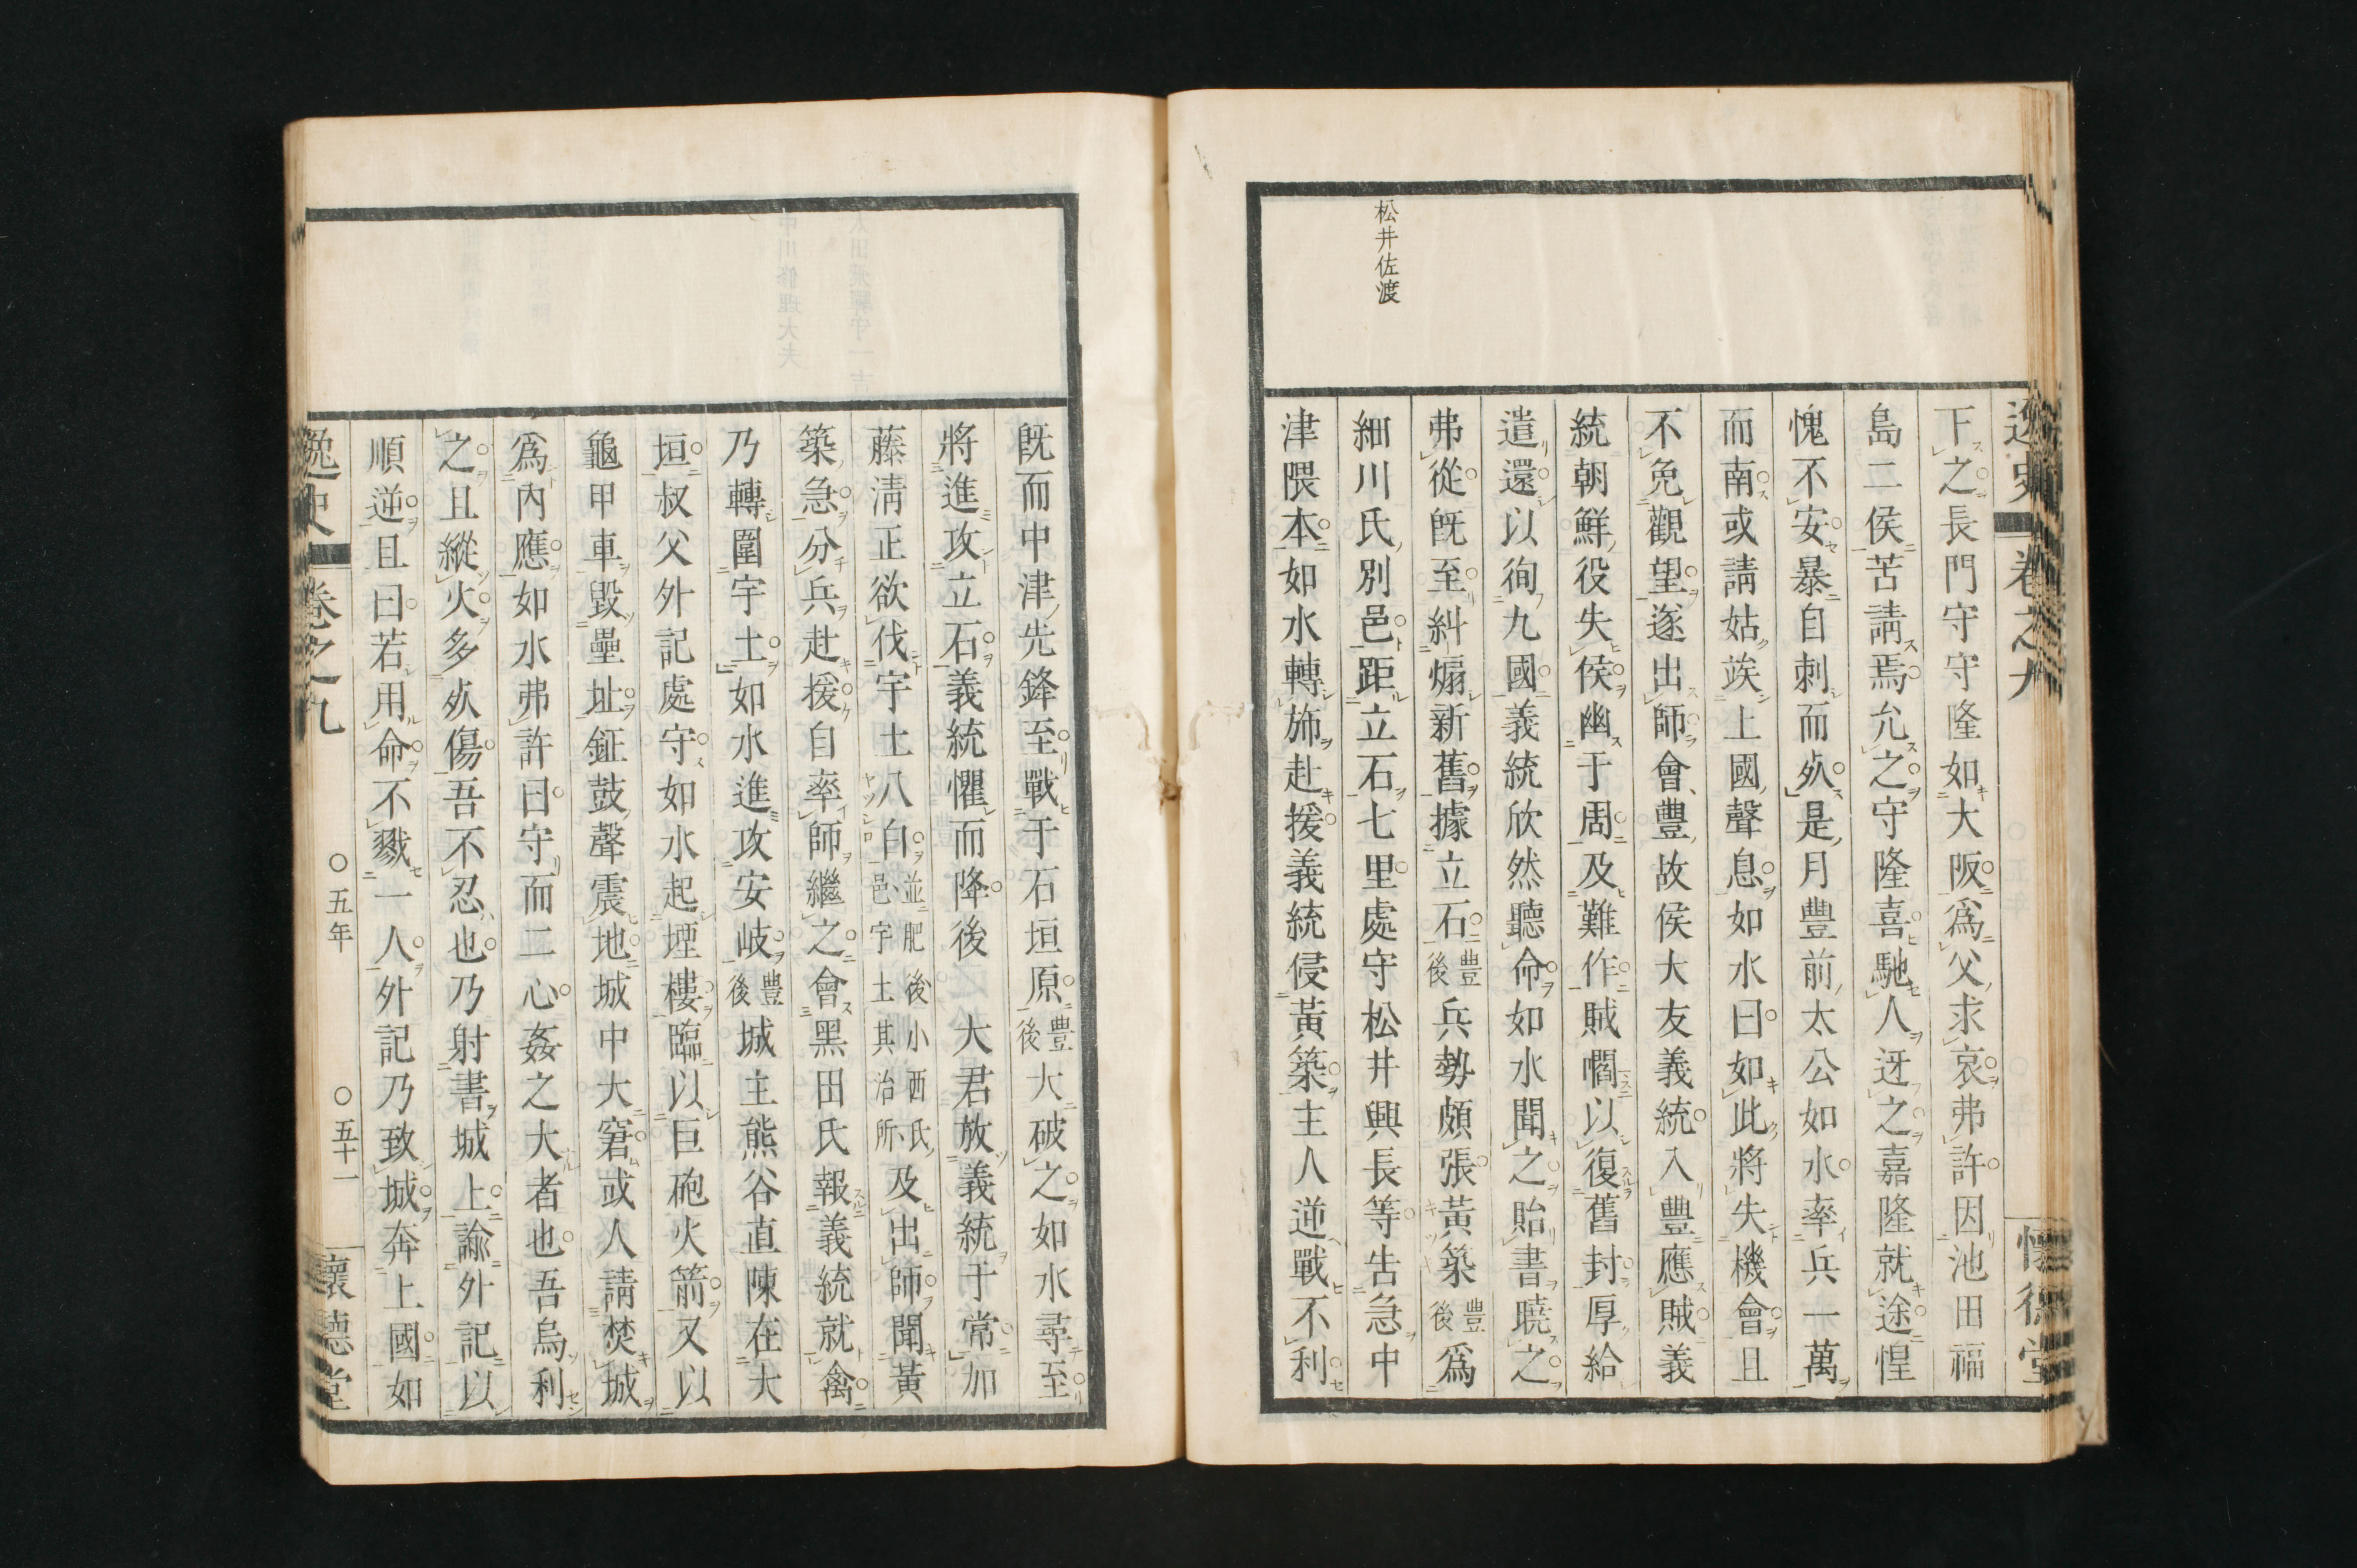 逸史 卷之九 懷德堂
下之長門守守隆如大阪爲父求哀弗許因池田福
島二侯苦請焉允之守隆喜馳人迓之嘉隆就途惶
愧不安暴自刺而死是月豐前太公如水率兵一萬
而南或請姑竢上國聲息如水曰如此將失機會且
不免觀望遂出師會豐故侯大友義統入豐應賊義
統朝鮮役失侯幽于周及難作賊嗾以復舊封厚給
遣還以徇九國義統欣然聽命如水聞之貽書曉之
弗從既至糾煽新舊據立石豐後兵勢頗張黃築豐後爲
細川氏別邑距立石七里處守松井興長等告急中
津隈本如水轉斾赴援義統侵黃築主人逆戰不利
松井佐渡
既而中津先鋒至戰于石垣原豐後大破之如水尋至
將進攻立石義統懼而降後 大君放義統于常加
藤淸正欲伐宇土八白並肥後小西氏邑宇土其治所及出師聞黃
築急分兵赴援自率師繼之會黑田氏報義統就禽
乃轉圍宇土如水進攻安岐豐後城主熊谷直陳在大
垣叔父外記處守如水起堙樓臨以巨砲火箭又以
龜甲車毀壘址鉦鼓聲震地城中大窘或人請焚城
爲內應如水弗許曰守而二心姦之大者也吾烏利
之且縱火多死傷吾不忍也乃射書城上諭外記以
順逆且曰若用命不戮一人外記乃致城奔上國如
逸史 卷之九 〇五年 〇五十一 懷德堂